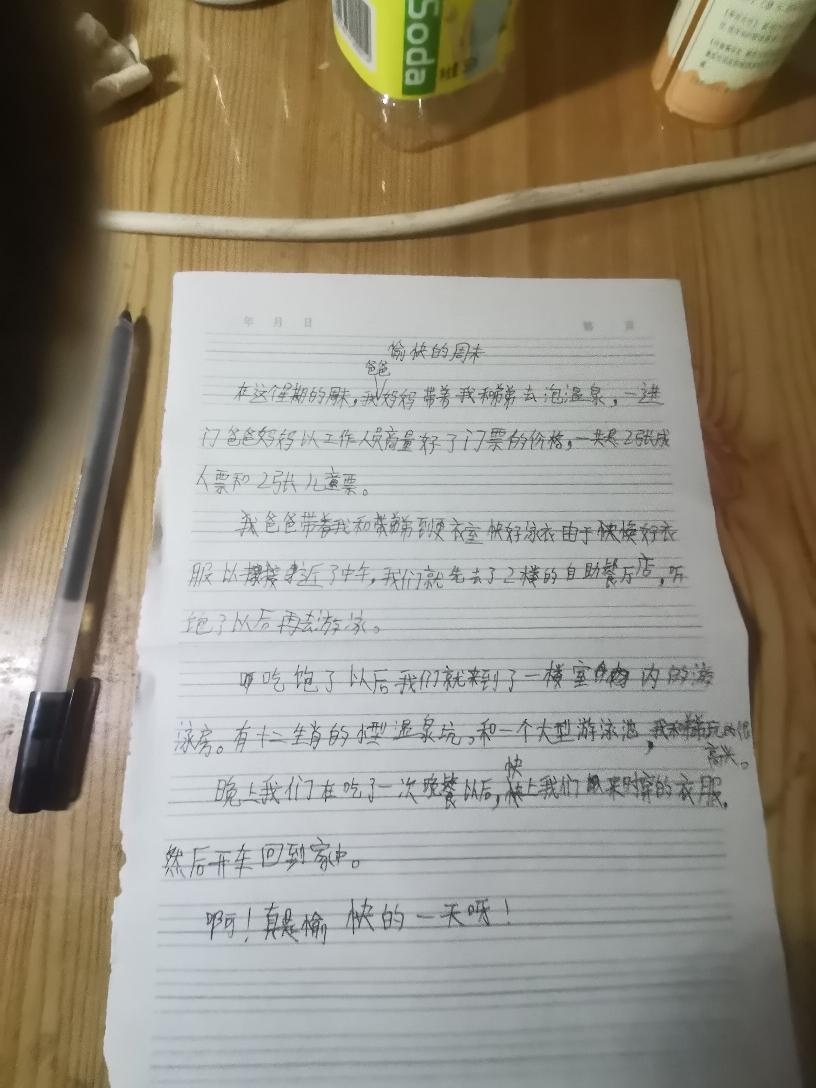 Soda
年 月 日 第 页
愉快的周末
爸爸
在这个星期的周末,我妈妈带着我和弟弟去泡温泉,一进
门爸爸妈妈以工作人员商量好了门票的价格,一共是2张成
人票和2张儿童票。
我爸爸带着我和弟弟到更衣室快好泳衣由于快换好衣
服以接近了中午,我们就先去了2楼的自助餐厅店,听
饱了以后再去游泳。
吃饱了以后我们就来到了一楼室内的游
泳房。有十二生肖的小型温泉坑,和一个大型游泳池,我和弟弟玩的很
高兴。
快
晚上我们在吃了一次晚餐以后,上我们来时穿的衣服.
然后开车回到家中。
啊!真是愉快的一天呀!